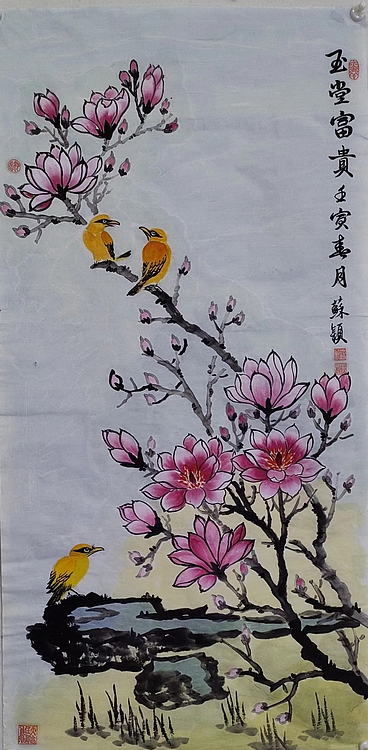 玉堂富貴 壬寅春月 蘇穎